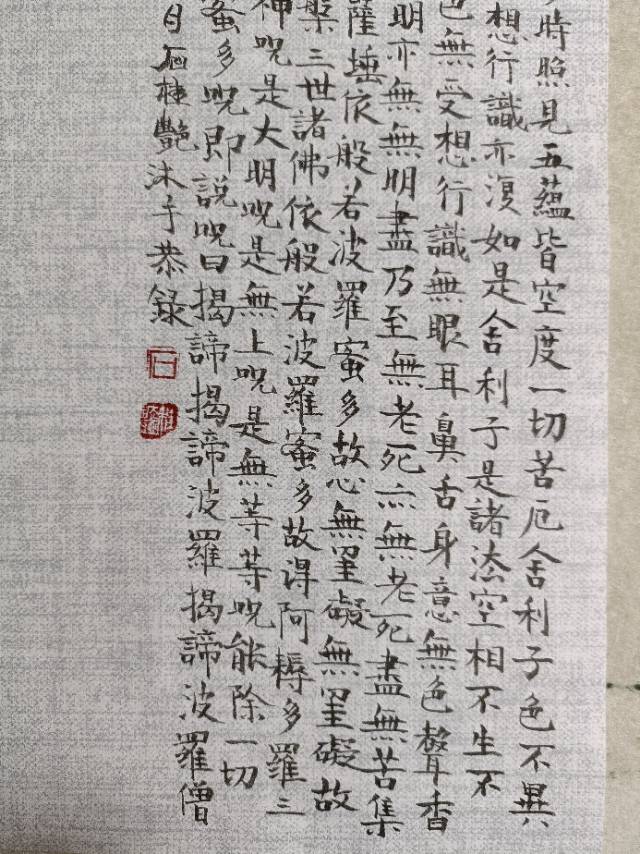 時照見五蘊皆空度一切苦厄舍利子色不異
想行識亦復如是舍利子是諸法空相不生不
色無受想行識無眼耳鼻舌身意無色聲香
明亦無無明盡乃至無老死亦無老死盡無苦集
薩埵依般若波羅蜜多故心無罣礙無罣礙故
槃三世諸佛依般若波羅蜜多故得阿耨多羅三
神咒是大明咒是無上咒是無等等咒能除一切
蜜多咒即說咒曰揭諦揭諦波羅揭諦波羅僧
日 艷沐手恭錄